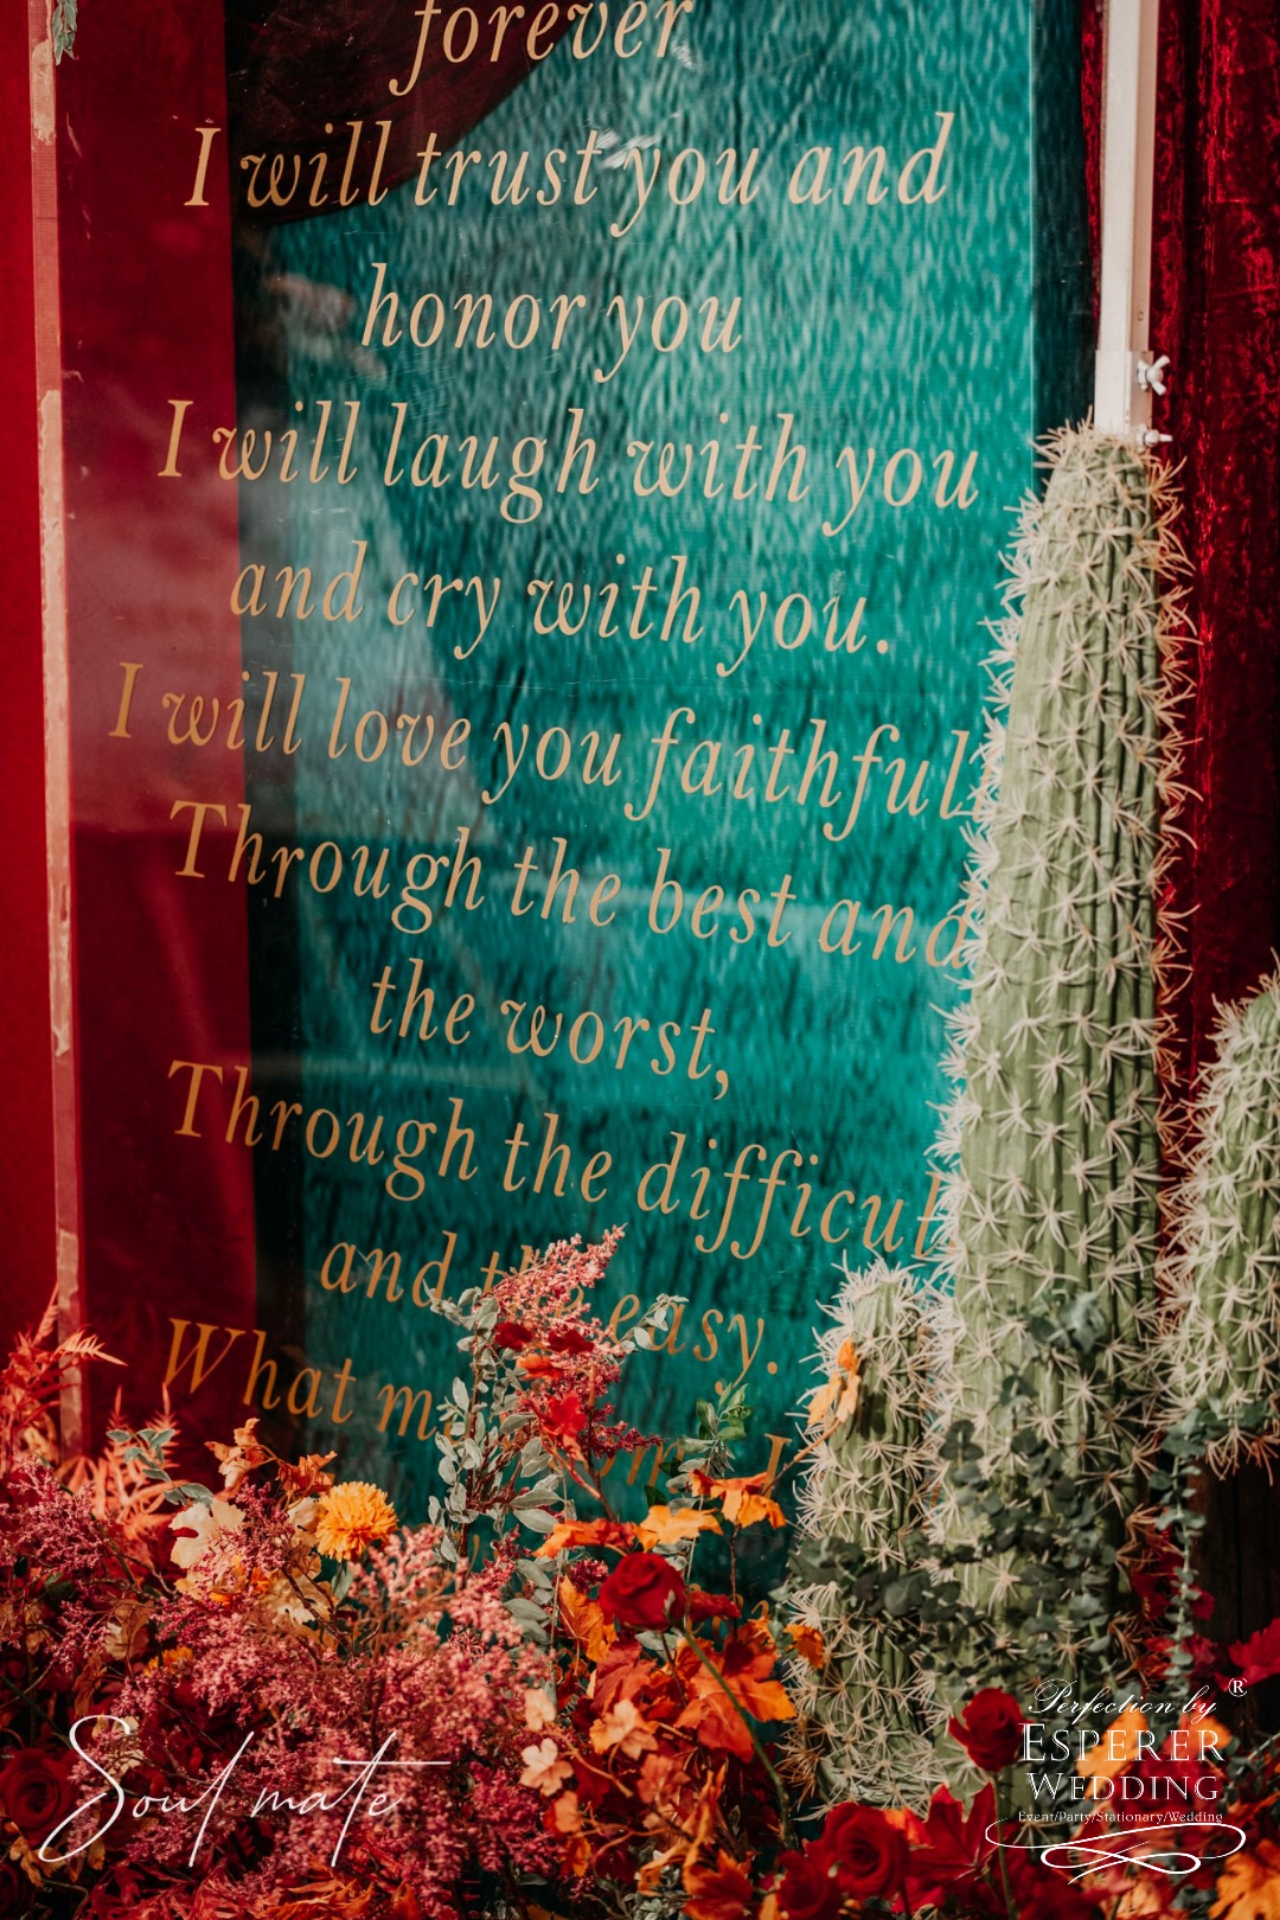 forever
I will trust you and
honor you
I will laugh with you
and cry with you.
I will love you faithful
Through the best and
the worst,
Through the difficul
and the easy.
What
I
Soul mate
Perfection by ®
ESPERER
WEDDING
Event/Party/Stationary/Wedding